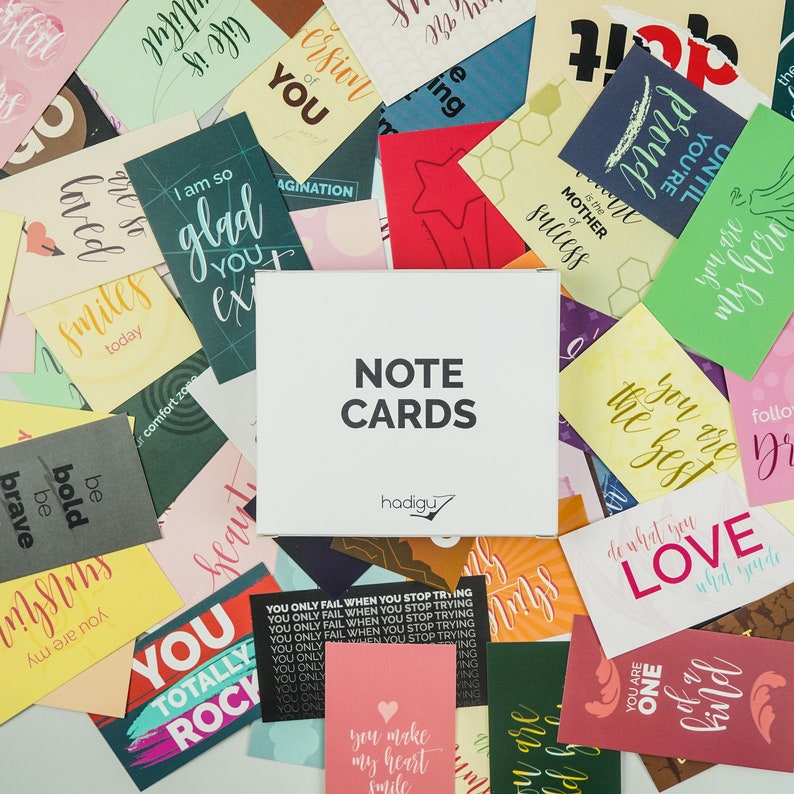 life is
version
of
YOU
ing
quit
do it
PROUD
UNTIL
YOU'RE
GO
are so
loved
I am so
glad
YOU
exist
AGINATION
is the
MOTHER
of
success
you are
my hero
smiles
today
NOTE
CARDS
hadigu
comfort zone
you are
the best
follow
be
bold
be
brave
beauty
do what you
LOVE
what you do
sunshine
you are my
YOU
TOTALLY
ROCK
YOU ONLY FAIL WHEN YOU STOP TRYING
YOU ONLY FAIL WHEN YOU STOP TRYING
YOU ONLY FAIL WHEN YOU STOP TRYING
YOU ONLY FAIL WHEN YOU STOP TRYING
YOU ONLY FAIL WHEN YOU STOP TRYING
shine
YOU ARE
ONE
of a
kind
you make
my heart
smile
you are